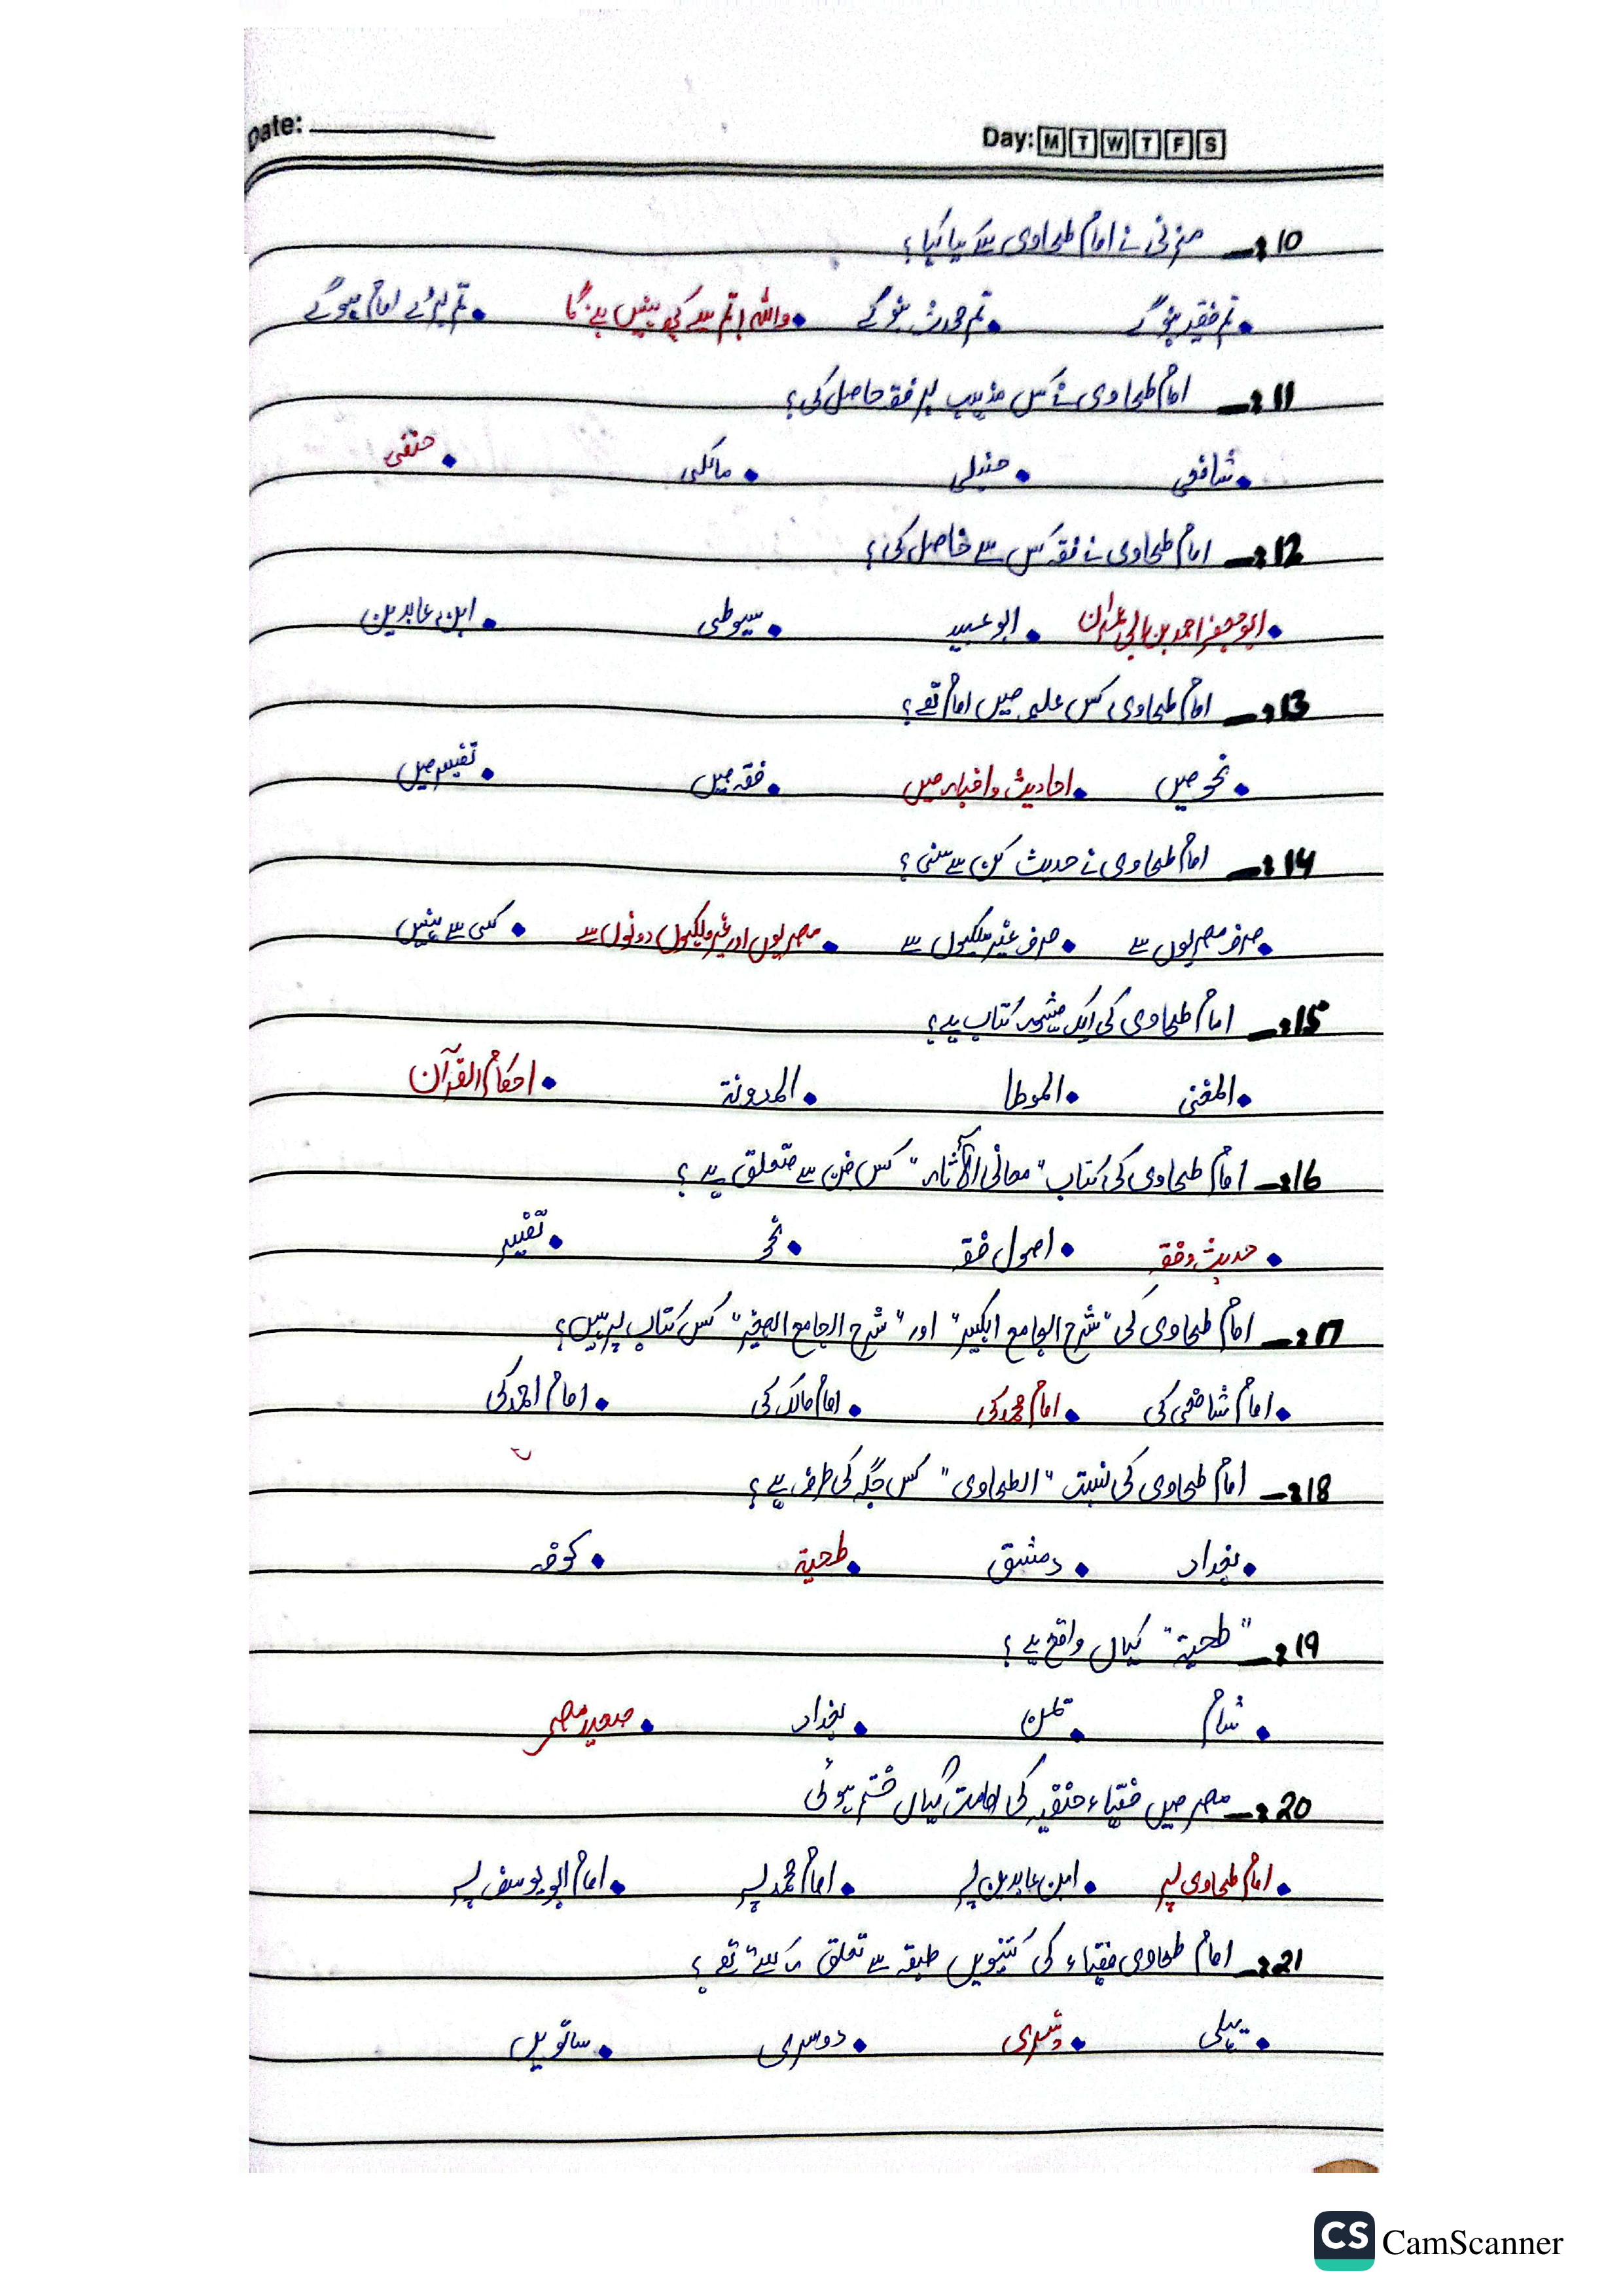 Date: Day: M T W T F S
10:- مزنی نے امام طحاوی سے کیا کہا؟
• تم فقیہ بنو گے • تم محدث بنو گے • واللہ! تم سے کچھ نہیں بنے گا • تم بڑے امام ہو گے
11:- امام طحاوی نے کس مذہب پر فقہ حاصل کی؟
• شافعی • حنبلی • مالکی • حنفی
12:- امام طحاوی نے فقہ کس سے حاصل کی؟
• ابو جعفر احمد بن ابی عمران • ابو عبید • سیوطی • ابن عابدین
13:- امام طحاوی کس علم میں امام تھے؟
• نحو میں • احادیث و اخبار میں • فقہ میں • تفسیر میں
14:- امام طحاوی نے حدیث کن سے سنی؟
• صرف مصریوں سے • صرف غیر ملکیوں سے • مصریوں اور غیر ملکیوں دونوں سے • کسی سے نہیں
15:- امام طحاوی کی ایک مشہور کتاب ہے؟
• المغنی • الموطا • المدونۃ • احکام القرآن
16:- امام طحاوی کی کتاب "معانی الآثار" کس فن سے متعلق ہے؟
• حدیث و فقہ • اصول فقہ • نحو • تفسیر
17:- امام طحاوی کی "شرح الجامع الکبیر" اور "شرح الجامع الصغیر" کس کتاب پر ہیں؟
• امام شافعی کی • امام محمد کی • امام مالک کی • امام احمد کی
18:- امام طحاوی کی نسبت "الطحاوی" کس جگہ کی طرف ہے؟
• بغداد • دمشق • طحیۃ • کوفہ
19:- "طحیۃ" کہاں واقع ہے؟
• شام • یمن • بغداد • صعید مصر
20:- مصر میں فقہاء حنفیہ کی امامت کہاں ختم ہوئی
• امام طحاوی پر • ابن عابدین پر • امام محمد پر • امام ابو یوسف پر
21:- امام طحاوی فقہاء کی کتنویں طبقہ سے تعلق رکھتے تھے؟
• پہلی • تیسری • دوسری • ساتویں
CS CamScanner